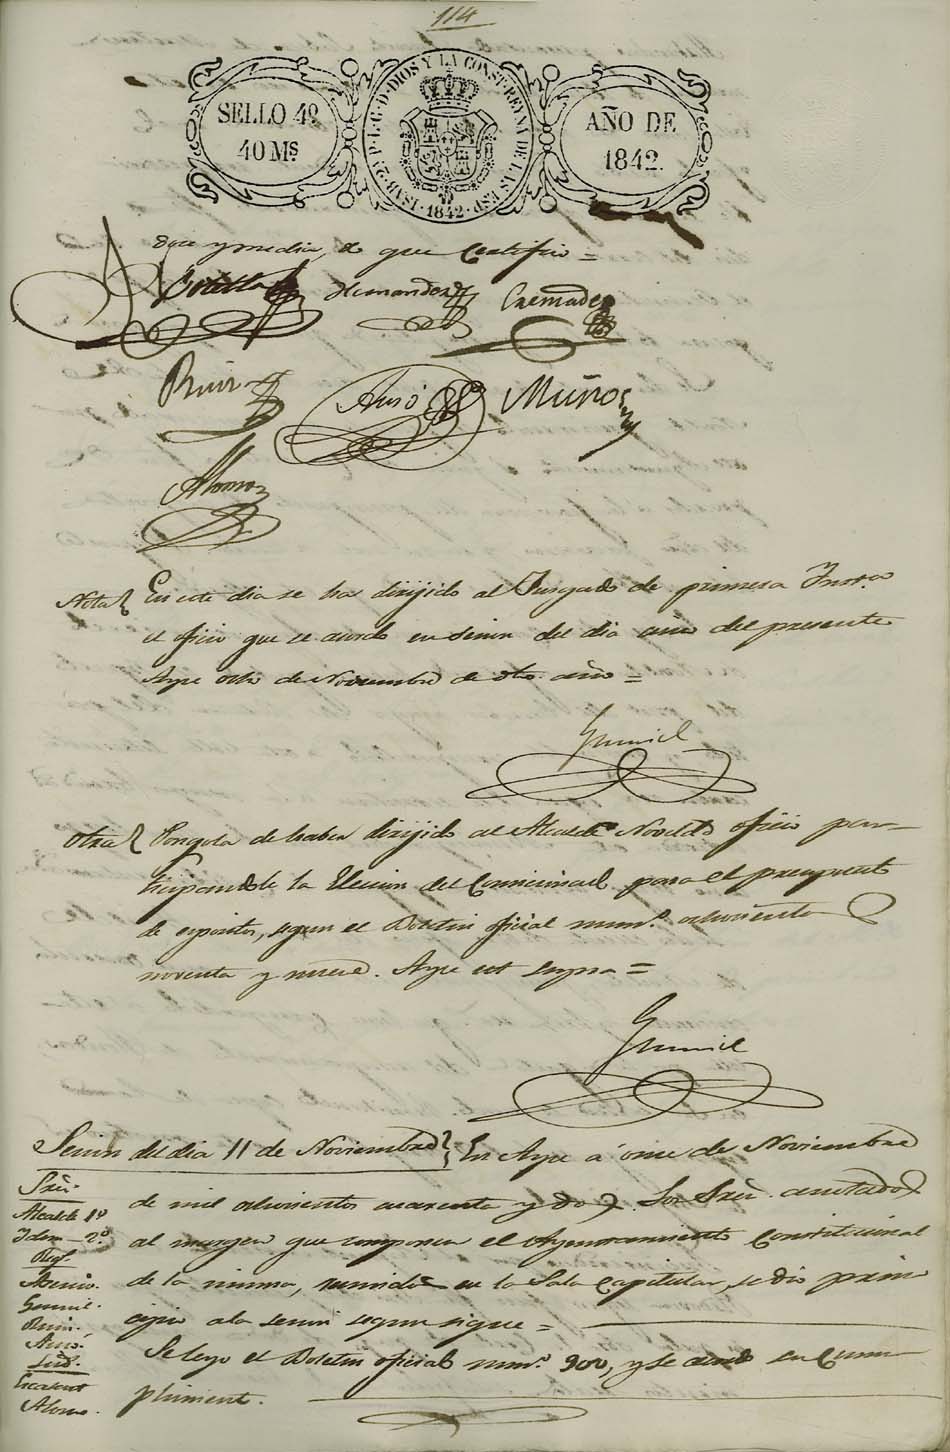 114
SELLO 4º
40 Ms
ISAB. 2ª P. L. G. D. DIOS Y LA CONST. REYNA DE LAS ESP.
1842
AÑO DE
1842.
doce y media, de que Certifico =
Botella Hernandez Cremades
Ruiz Auso Muños
Alonso
Nota En este dia se ha dirijido al Jusgado de primera Inst.a
el oficio que se acordo en sesion del dia del presente
Aspe ocho de Noviembre de dho. año =
Gumiel
Otra Pongola de haber dirijido al Alcalde Novelda oficio par-
ticipandole la Eleccion del Comicionado para el presupuesto
de espositos, segun el Boletin oficial num.º ochocientos
noventa y nueve. Aspe ut supra =
Gumiel
Sesion del dia 11 de Noviembre En Aspe á once de Noviembre
Sres.
de mil ochocientos cuarenta y dos. Los Sres. anotados
Alcalde 1º
Idem 2º
al margen que componen el Ayuntamiento Constitucional
Reg.
de la misma, reunidos en la Sala Capitular, se dio prin-
Gumiel.
Ruiz.
cipio a la sesion segun sigue =
Auso.
Sind.
Se leyo el Boletin oficial num.º 900, y se acordo su Cum-
plimiento.
Alonso.